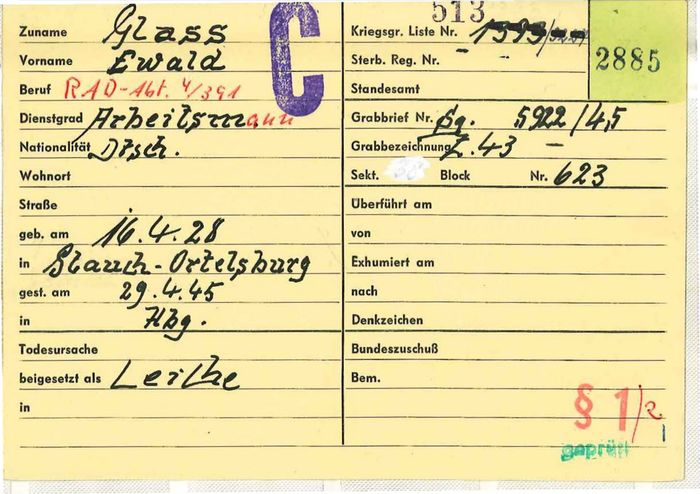 Zuname Glass
Vorname Ewald
Beruf RAD-Abt. 4/391
Dienstgrad Arbeitsmann
Nationalität Dtsch.
Wohnort
Straße
geb. am 16.4.28
in Blauch-Ortelsburg
gest. am 29.4.45
in Hbg.
Todesursache
beigesetzt als Leiche
in
C
513
Kriegsgr. Liste Nr. 1599/
2885
Sterb. Reg. Nr. - -
Standesamt
Grabbrief Nr. Sg. 5922/45
Grabbezeichnung Z. 43 -
Sekt. Block Nr. 623
Überführt am
von
Exhumiert am
nach
Denkzeichen
Bundeszuschuß
Bem.
§ 1/2
1
geprüft